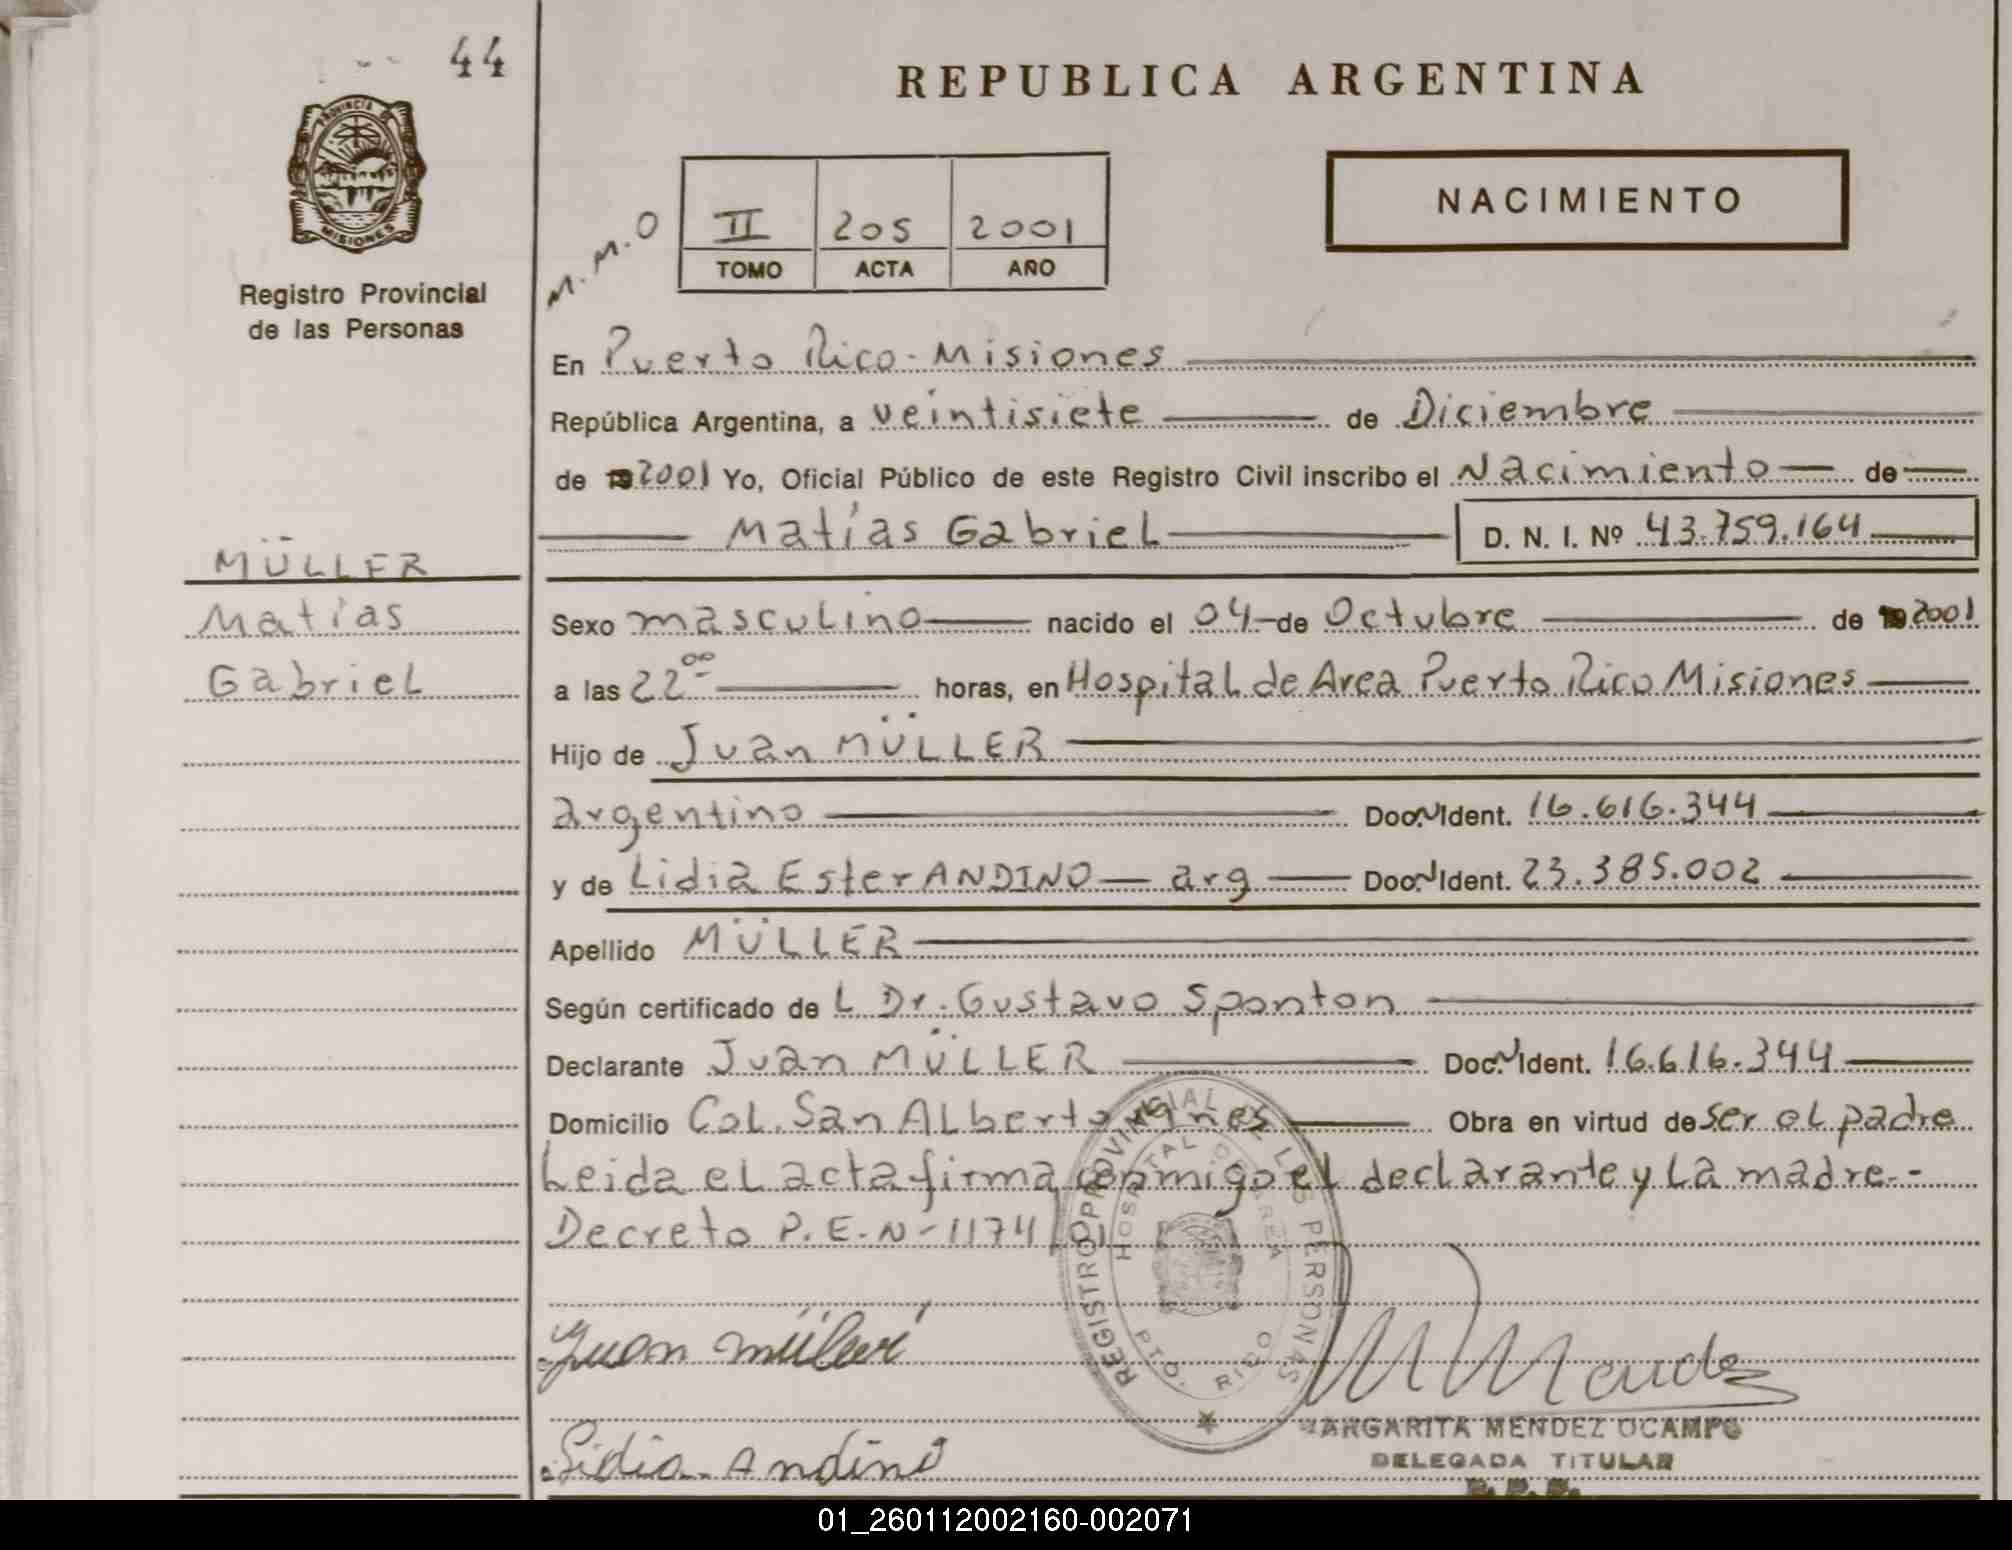 44
REPUBLICA ARGENTINA
PROVINCIA DE
MISIONES
Registro Provincial
de las Personas
M.M.O
II 205 2001
TOMO ACTA AÑO
NACIMIENTO
En Puerto Rico - Misiones
República Argentina, a veintisiete de Diciembre
de 2001 Yo, Oficial Público de este Registro Civil inscribo el Nacimiento de
Matías Gabriel D. N. I. Nº 43.759.164
MÜLLER
Matías
Gabriel
Sexo masculino nacido el 04 de Octubre de 2001
a las 22 00 horas, en Hospital de Area Puerto Rico Misiones
Hijo de Juan MÜLLER
argentino Doc. N Ident. 16.616.344
y de Lidia Ester ANDINO - arg Doc. N Ident. 23.385.002
Apellido MÜLLER
Según certificado de L Dr. Gustavo Sponton
Declarante Juan MÜLLER Doc. N Ident. 16.616.344
Domicilio Col. San Alberto Obra en virtud de ser el padre
Leida el acta firma conmigo el declarante y La madre.-
Decreto P.E.N - 1174/01
REGISTRO PROVINCIAL DE LAS PERSONAS
HOSPITAL DE AREA
PTO. RICO
Juan müller
M Mendez
MARGARITA MENDEZ OCAMPO
DELEGADA TITULAR
Lidia Andino
01_260112002160-002071